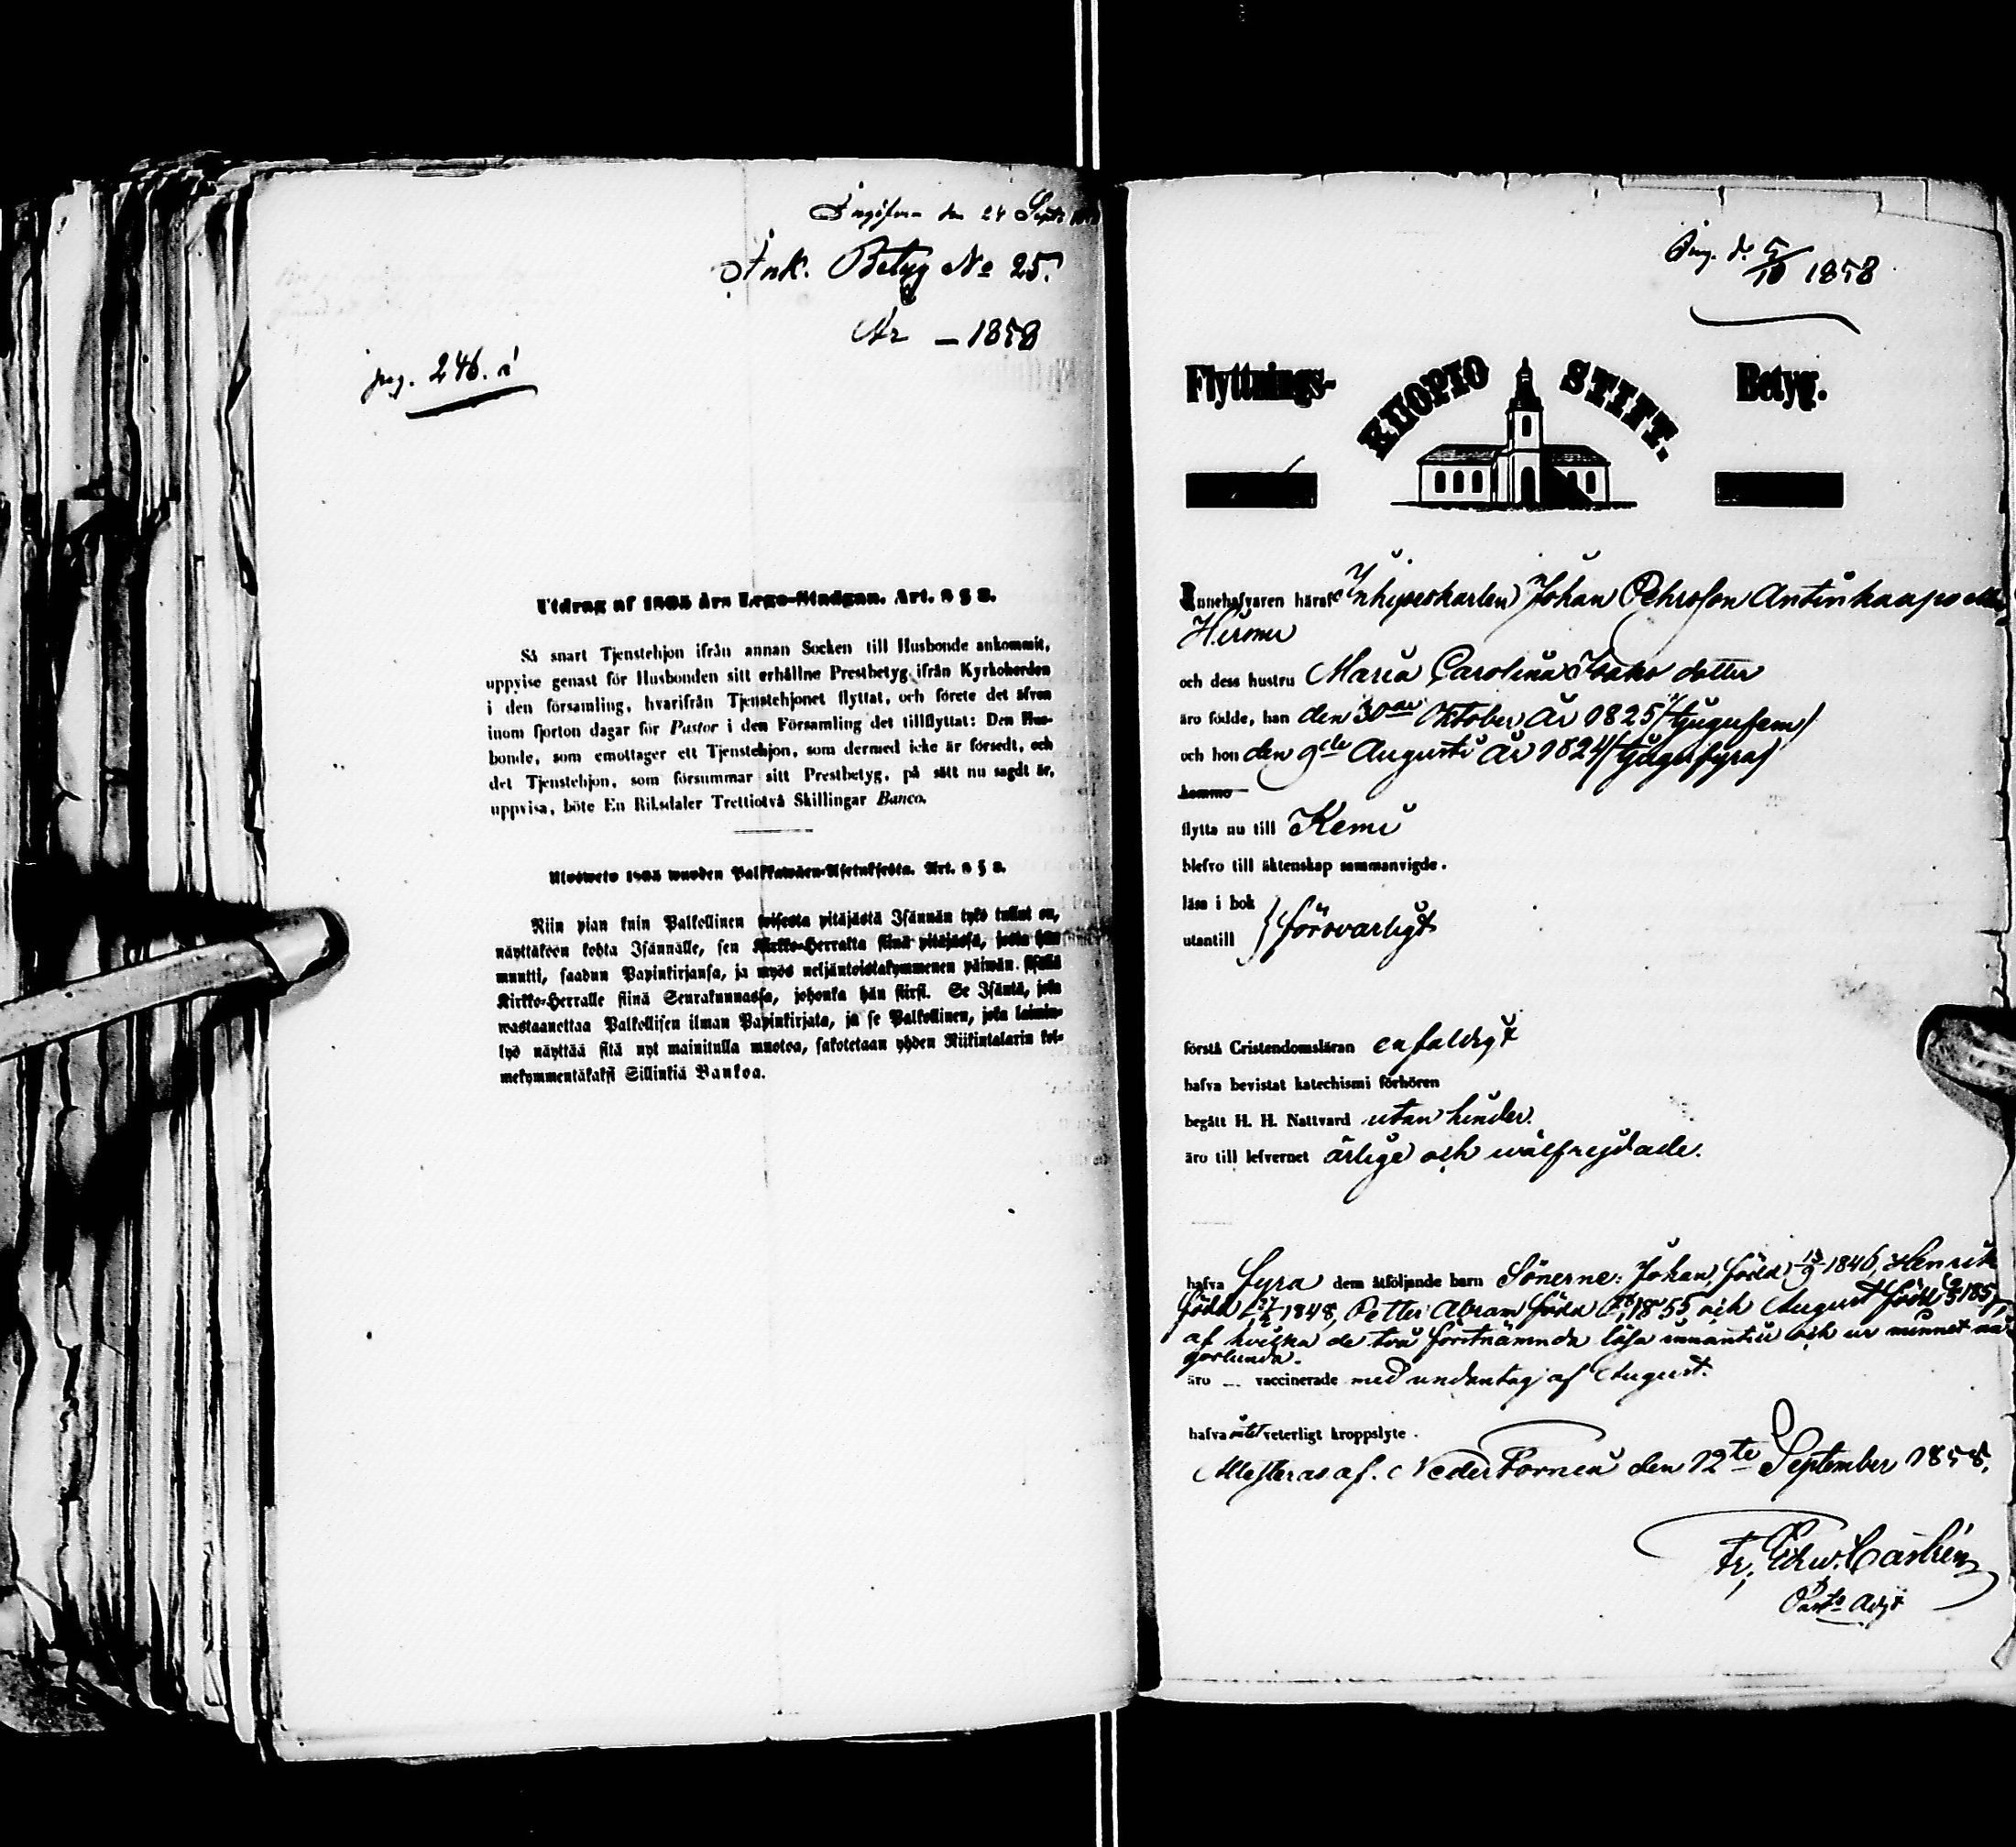 den 24 Sept
Ank. Betyg No 25.
År – 1858
pag. 246. á
Utdrag af 1805 års Lego-Stadgan. Art. 2 § 2.
Så snart Tjenstehjon ifrån annan Socken till Husbonde ankommit,
uppvise genast för Husbonden sitt erhållne Prestbetyg ifrån Kyrkoherden
i den församling, hvarifrån Tjenstehjonet flyttat, och förete det äfven
inom fjorton dagar för Pastor i den Församling det tillflyttat: Den Hus-
bonde, som emottager ett Tjenstehjon, som dermed icke är försedt, och
det Tjenstehjon, som försummar sitt Prestbetyg, på sätt nu sagdt är,
uppvisa, böte En Riksdaler Trettiotvå Skillingar Banco.
Ulosweto 1805 wuoden Palkkawäen-Asetuksesta. Art. 2 § 2.
Niin pian kuin Palkollinen toisesta pitäjästä Isännän tykö tullut on,
näyttäköön kohta Isännälle, sen Kirkko-Herralta siinä pitäjässä, josta hän
muutti, saadun Papinkirjansa, ja myös neljäntoistakymmenen päiwän sisällä
Kirkko-Herralle siinä Seurakunnassa, johonka hän siirsi. Se Isäntä, joka
wastaanottaa Palkollisen ilman Papinkirjata, ja se Palkollinen, joka laimin-
lyö näyttää sitä nyt mainitulla muotoa, sakotetaan yhden Riikintalarin kol-
mekymmentäkaksi Sillinkiä Bankoa.
Ing. d. 5/10 1858
Flyttnings- KUOPIO STIFT. Betyg.
Innehafvaren häraf Inhyseskarlen Johan Pehrsson Antinkaapo
och dess hustru Maria Carolina Isaks dotter
äro födde, han den 30de Oktober År 1825 /tjugufem/
och hon den 9de Augusti År 1824 /tjugufyra/
komma
flytta nu till Kemi
blefvo till äktenskap sammanvigde.
läsa i bok
utantill } försvarligt
förstå Cristendomsläran enfaldigt
hafva bevistat katechismi förhören
begått H. H. Nattvard utan hinder.
äro till lefvernet ärlige och wälfrejdade.
hafva fyra dem åtföljande barn Sönerne: Johan, född 1846, Henrik
född 1848, Petter Abram född 1855 och August född
af hvilka de två förstnämnda läsa innantill och ur minnet nå-
gorlunda.
äro — vaccinerade med undantag af August.
hafva intet veterligt kroppslyte.
Attesteras af. Neder Torneå den 12te September 1858.
Fr. Edw. Castrén
Past. Adjt